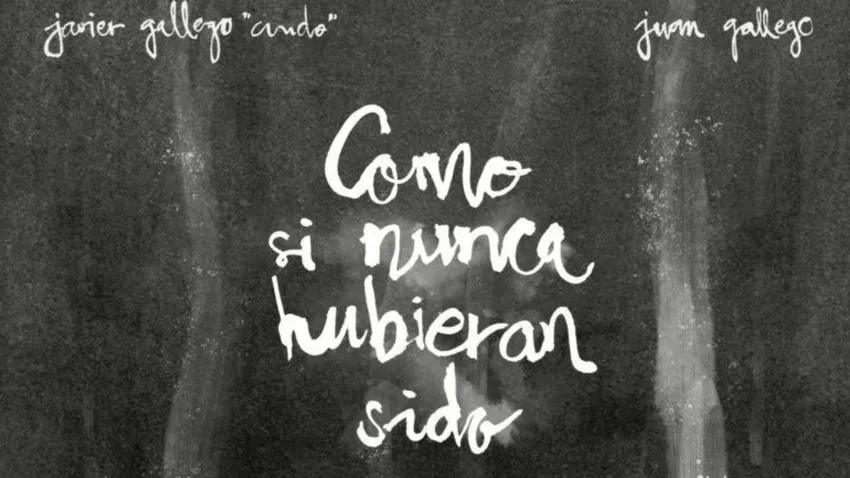 javier gallego "crudo"
juan gallego
Como
si nunca
hubieran
sido